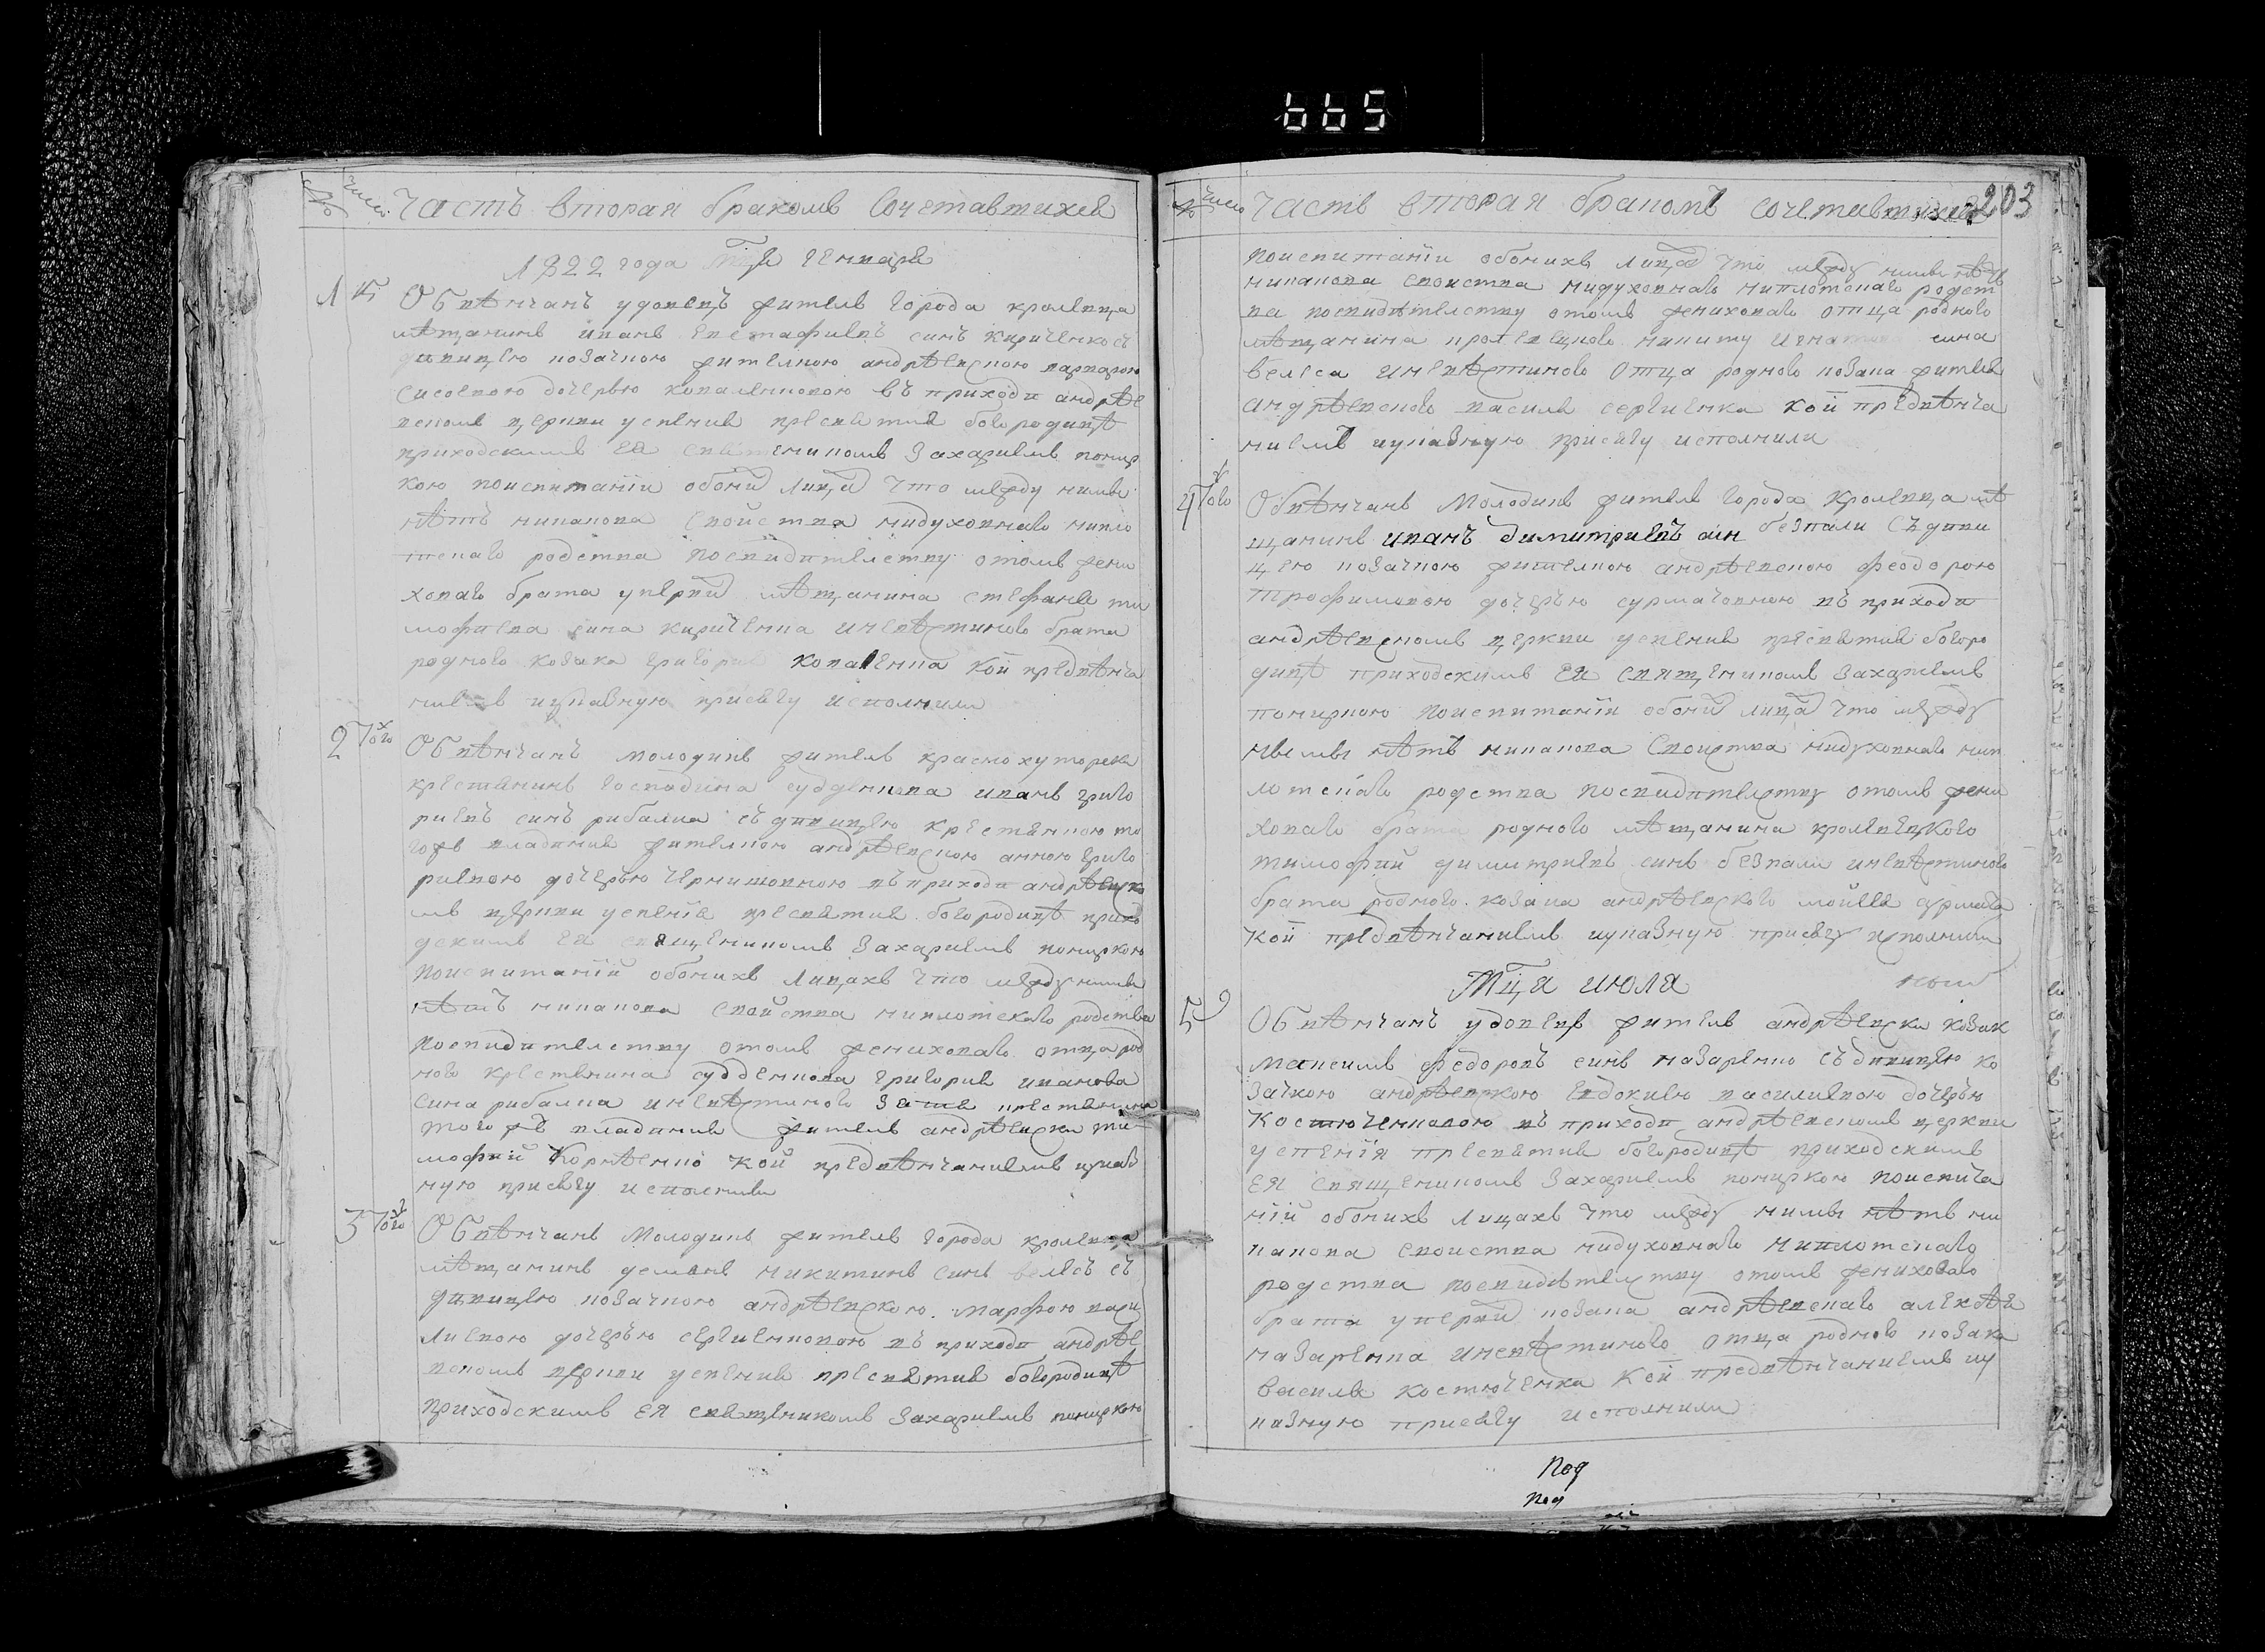 665
№ число Часть вторая бракомъ Сочетавшихся
1822 года мца генваря
1 15 Обвѣнчанъ удовецъ житель города кролевца
мѣщанинъ иванъ евстафиевъ синъ Кириченко съ
дивицею козачкою жителкою андрѣевскою варварою
сисоевою дочерью коваленковою въ приходи андрѣе
вскомъ церкви успения пресвятия богородицѣ
приходскимъ ея священикомъ Захариемъ
кою поиспитании обоий лица что между ними
нѣтъ никакова свойства нидуховнаго нипло
тскаго родства посвидителству отомъ жени
ховаго брата мѣщанина стефана ти
мофиева сина кириченка иневѣстиного брата
родного козака григория коваленка кой предвѣнча
ниемъ иуказную присягу исполнили
2 7ого Обвѣнчанъ молодикъ житель краснохуторски
крестянинъ господина суддиенкова иванъ григо
риевъ синъ рибалка съ дивицею крестянкою то
гожъ владиния жителкою андрѣевскою анною григо
риевною дочерью чернишовною въ приходи андрѣевско
мъ церкви успения пресвятия богородицѣ прихо
дскимъ ея священикомъ захариемъ
поиспитаний обоихъ лицахъ что между ними
нѣтъ никакова свойства ниплотскаго родства
посвидителству отомъ жениховаго отца род
ного крестянина суддиенкова григория иванова
сина рибалка иневѣстиного зятя крестянина
того жъ владиния жителя андрѣевски ти
мофий Корнѣенко кой предвѣнчаниемъ иуказ
ную присягу исполнили
3 7ого Обвѣнчанъ Молодикъ житель города кролевца
мѣщанинъ демянъ никитинъ синъ велесъ съ
дивицею козачкою андрѣевскою марфою васи
лиевою дочерью сергиенковою въ приходи андрѣе
вскомъ церкви успения пресвятия богородицѣ
приходскимъ ея священикомъ Захариемъ
№ число Часть вторая бракомъ сочетавшихся 203
поиспитании обоихъ лица что между ними нѣтъ
никакова своиства нидуховнаго ниплотскаго родст
ва посвидѣтелству отомъ жениховаго отца родного
мѣщанина кролевецкого никиту сина
велеса иневѣстиного отца родного козака жителя
андрѣевского василя сергиенка кой предвѣнча
ниемъ иуказную присягу исполнили
4 7ого Обвѣнчанъ Молодикъ житель города Кролевца мѣ
щанинъ иванъ димитриевъ син безпали Съ диви
цею козачкою жителкою андрѣевскою феодорою
трофимовою дочерью сурмачовною въ приходи
андрѣевскомъ церкви успения пресвятия богоро
дицѣ приходскимъ ея священикомъ Захариемъ
поиспитании обоий лица что между
ними нѣтъ никакова Своиства нидуховнаго нип
лотскаго родства посвидителству отомъ жени
ховаго брата родного мѣщанина кролевецкого
тимофий димитриевъ синъ безпали иневѣстиного
брата родного козака андрѣевского мойсея сурмача
кой предвѣнчаниемъ иуказную присягу исполнили
Мца июля
5 9 Обвѣнчанъ удовецъ житель андрѣевски козак
Максимъ федоровъ синъ назаренко съ дивицею ко
зачкою андрѣевскою евдокиею василиевою дочерью
Костюченковою въ приходи андрѣевскомъ церкви
успения пресвятия богородицѣ приходскимъ
ея священикомъ Захариемъ поиспита
ний обоихъ лицахъ что между ними нѣтъ ни
какова своиства нидуховнаго ниплотскаго
родства посвидѣтелству отомъ жениховаго
брата козака андрѣевскаго алексѣя
назаренка иневѣстиного отца родного козака
василя костюченка кой предвѣнчаниемъ иу
казную присягу исполнили
Под
Под